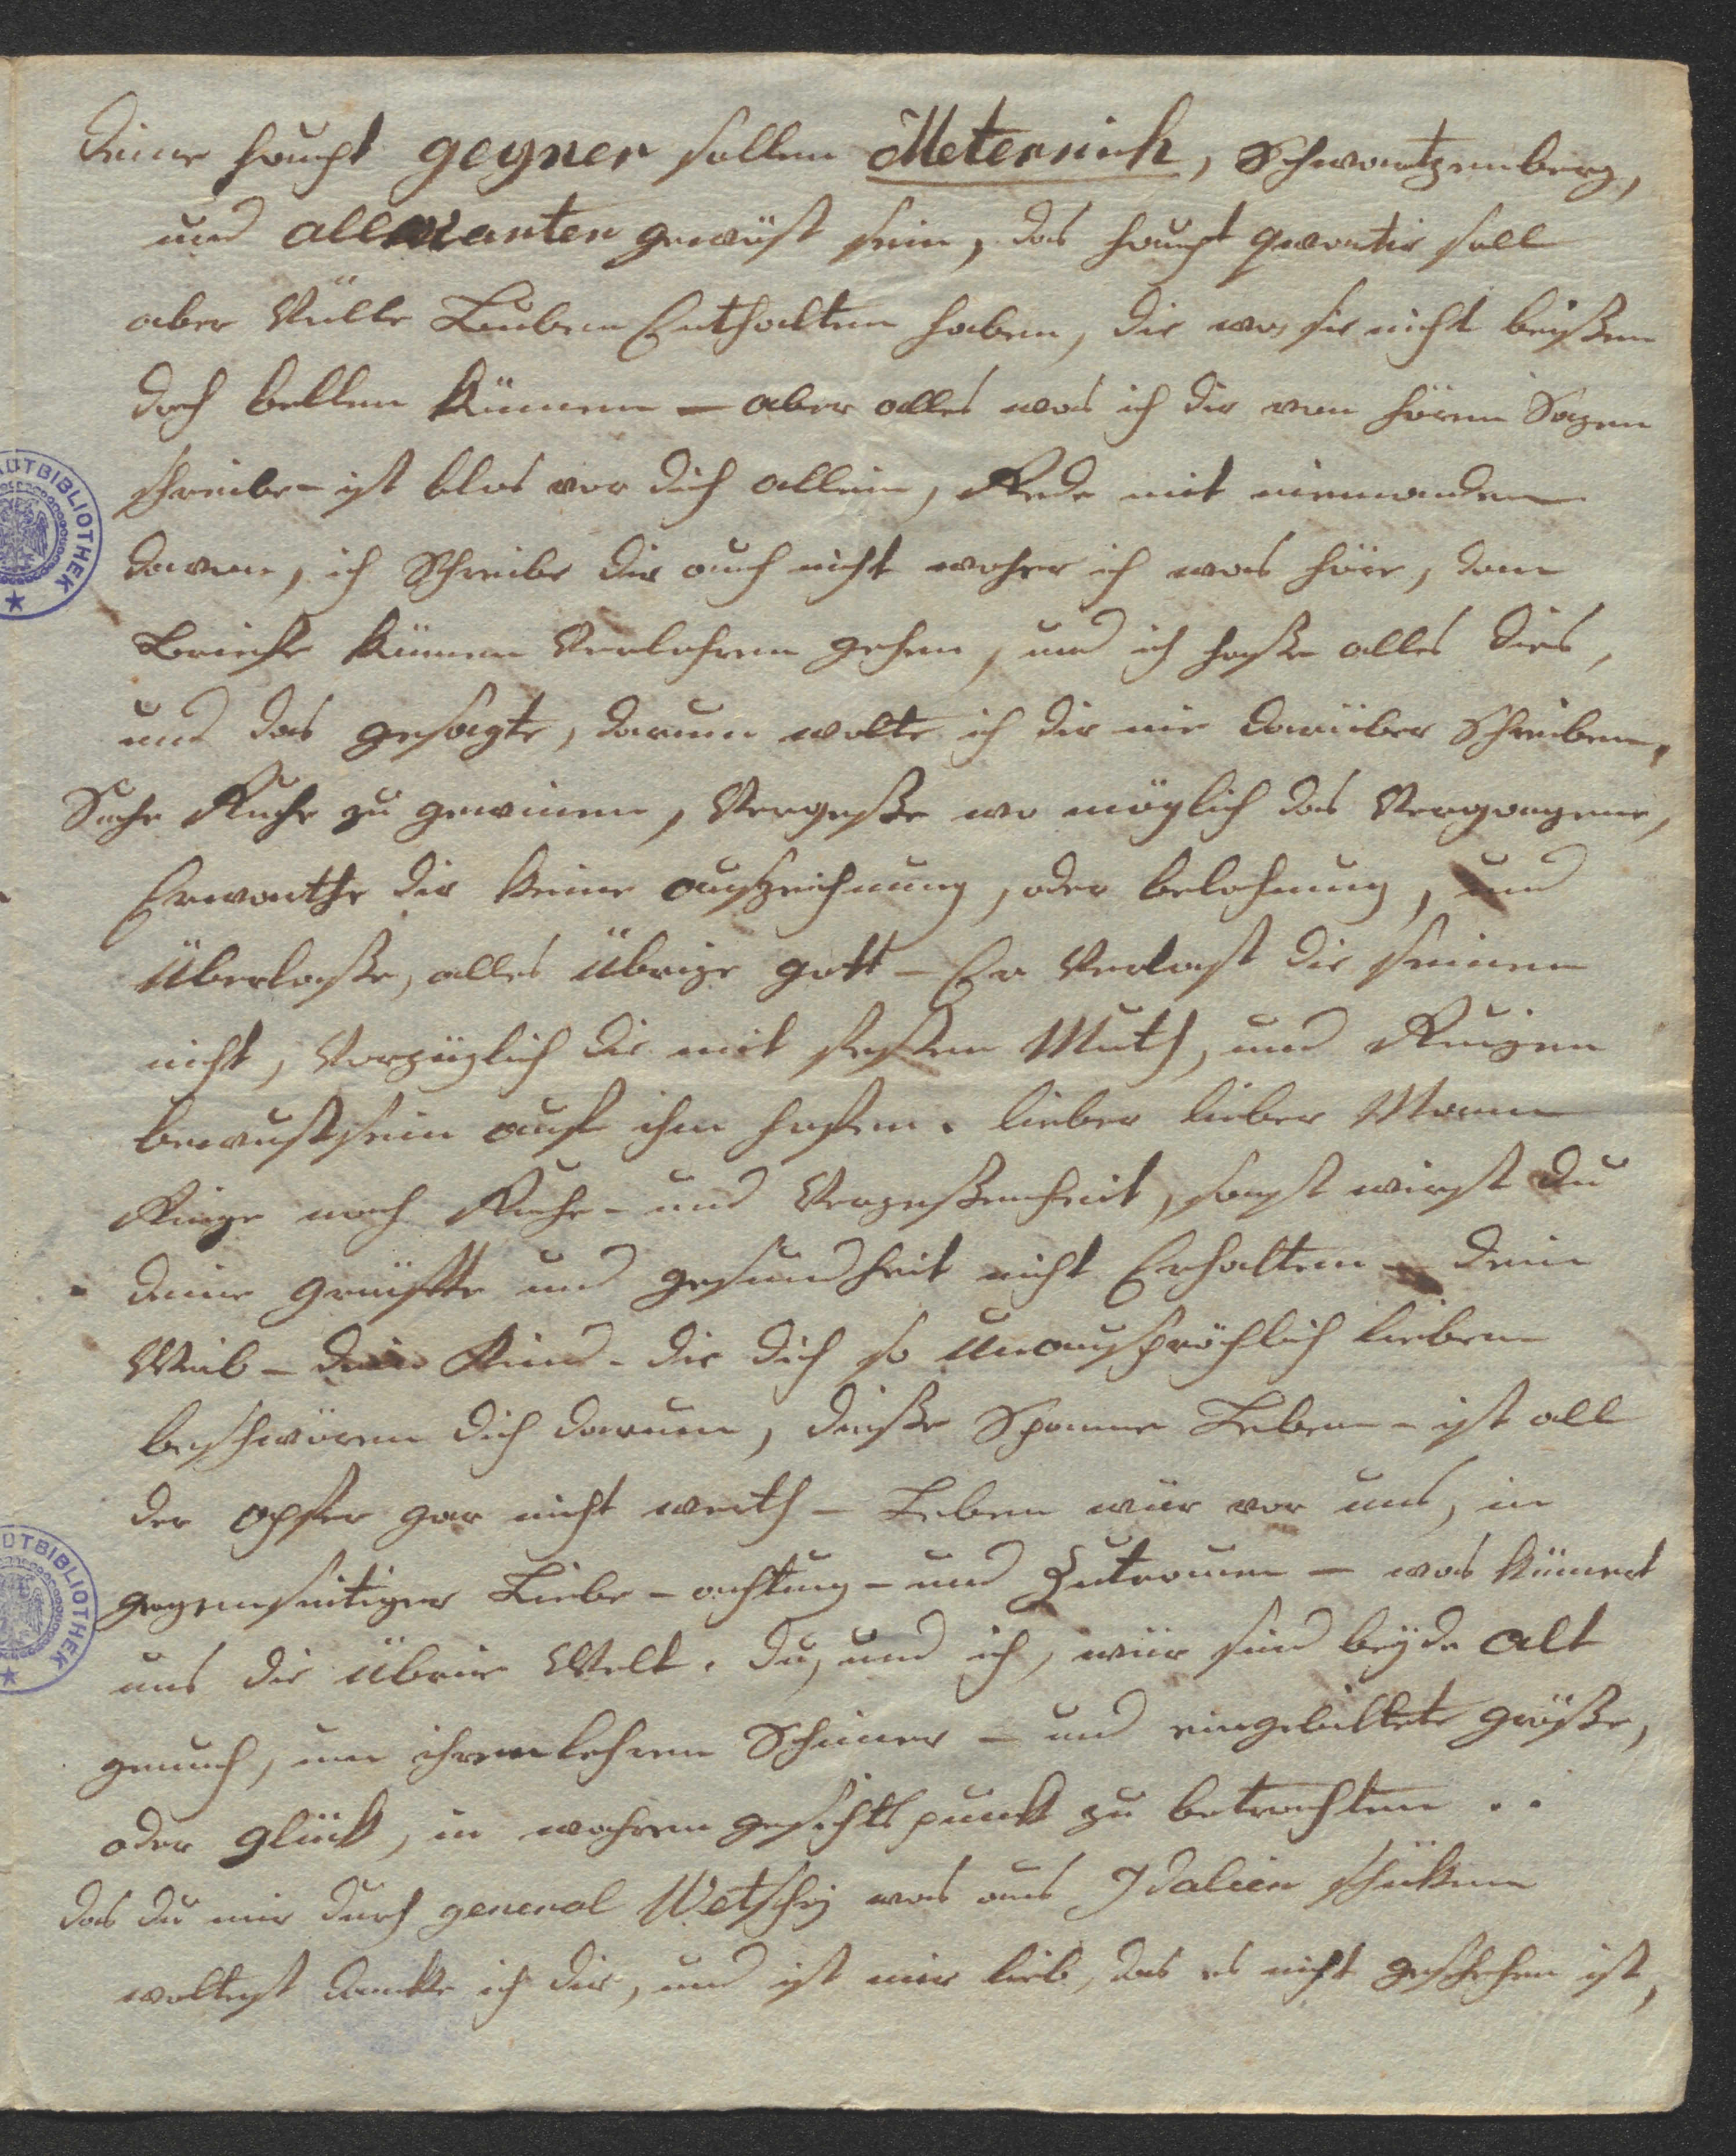 deine haupt gegner sollen Meternich, Schwartzenberg,
und allwianten gewäst sein, das haupt qwartir soll
aber Vülle Buben Enthalten haben, die wo sie nicht beißen
doch bellen künnen – aber alles was ich dir von hören Sagen
schreibe – ist blos vor dich allein, Rede mit niemanden
davon, ich Schreibe dir auch nicht woher ich was höre, dan
Briefe künnen Verlohren gehen, und ich haße alles dies,
und das gesagte, darum wolte ich dir nie darüber Schreiben,
Suche Ruhe zu gewinnen, Vergeße wo möglich das Vergangene,
Erwarthe dir keine auszeichnung, oder belohnung, und
Überlaße, alles Übrige gott – Er Verlast die seinen
nicht, Vorzüglich die mit festen Muth, und Ruigen
bewustsein auf ihn hofen. lieber lieber Mann
Ringe nach Ruhe – und Vergeßenheit, sonst wirst du
deine gräfte und gesundheit nicht Erhalten – dein
Weib – dein Kind – die dich so Unausprächlich lieben
beschwören dich darum, dieße Spanne Leben – ist all
der opfer gar nicht werth – Leben wür vor uns, in
gegenseitiger Liebe – achtung – und Zutrauen – was kümert
uns die Übrie Welt. du, und ich, wür sind beyde alt
genuch, um ihren lehren Schimer – und eingebiltete größe,
oder glück, in wahren gesichts punckt zu betrachten ..
das du mir durch general Wetschy was aus Idalien schicken
woltest dancke ich dir, und ist mir lieb, das es nicht geschehen ist,
ADTBIBLIOTHEK
ADTBIBLIOTHEK